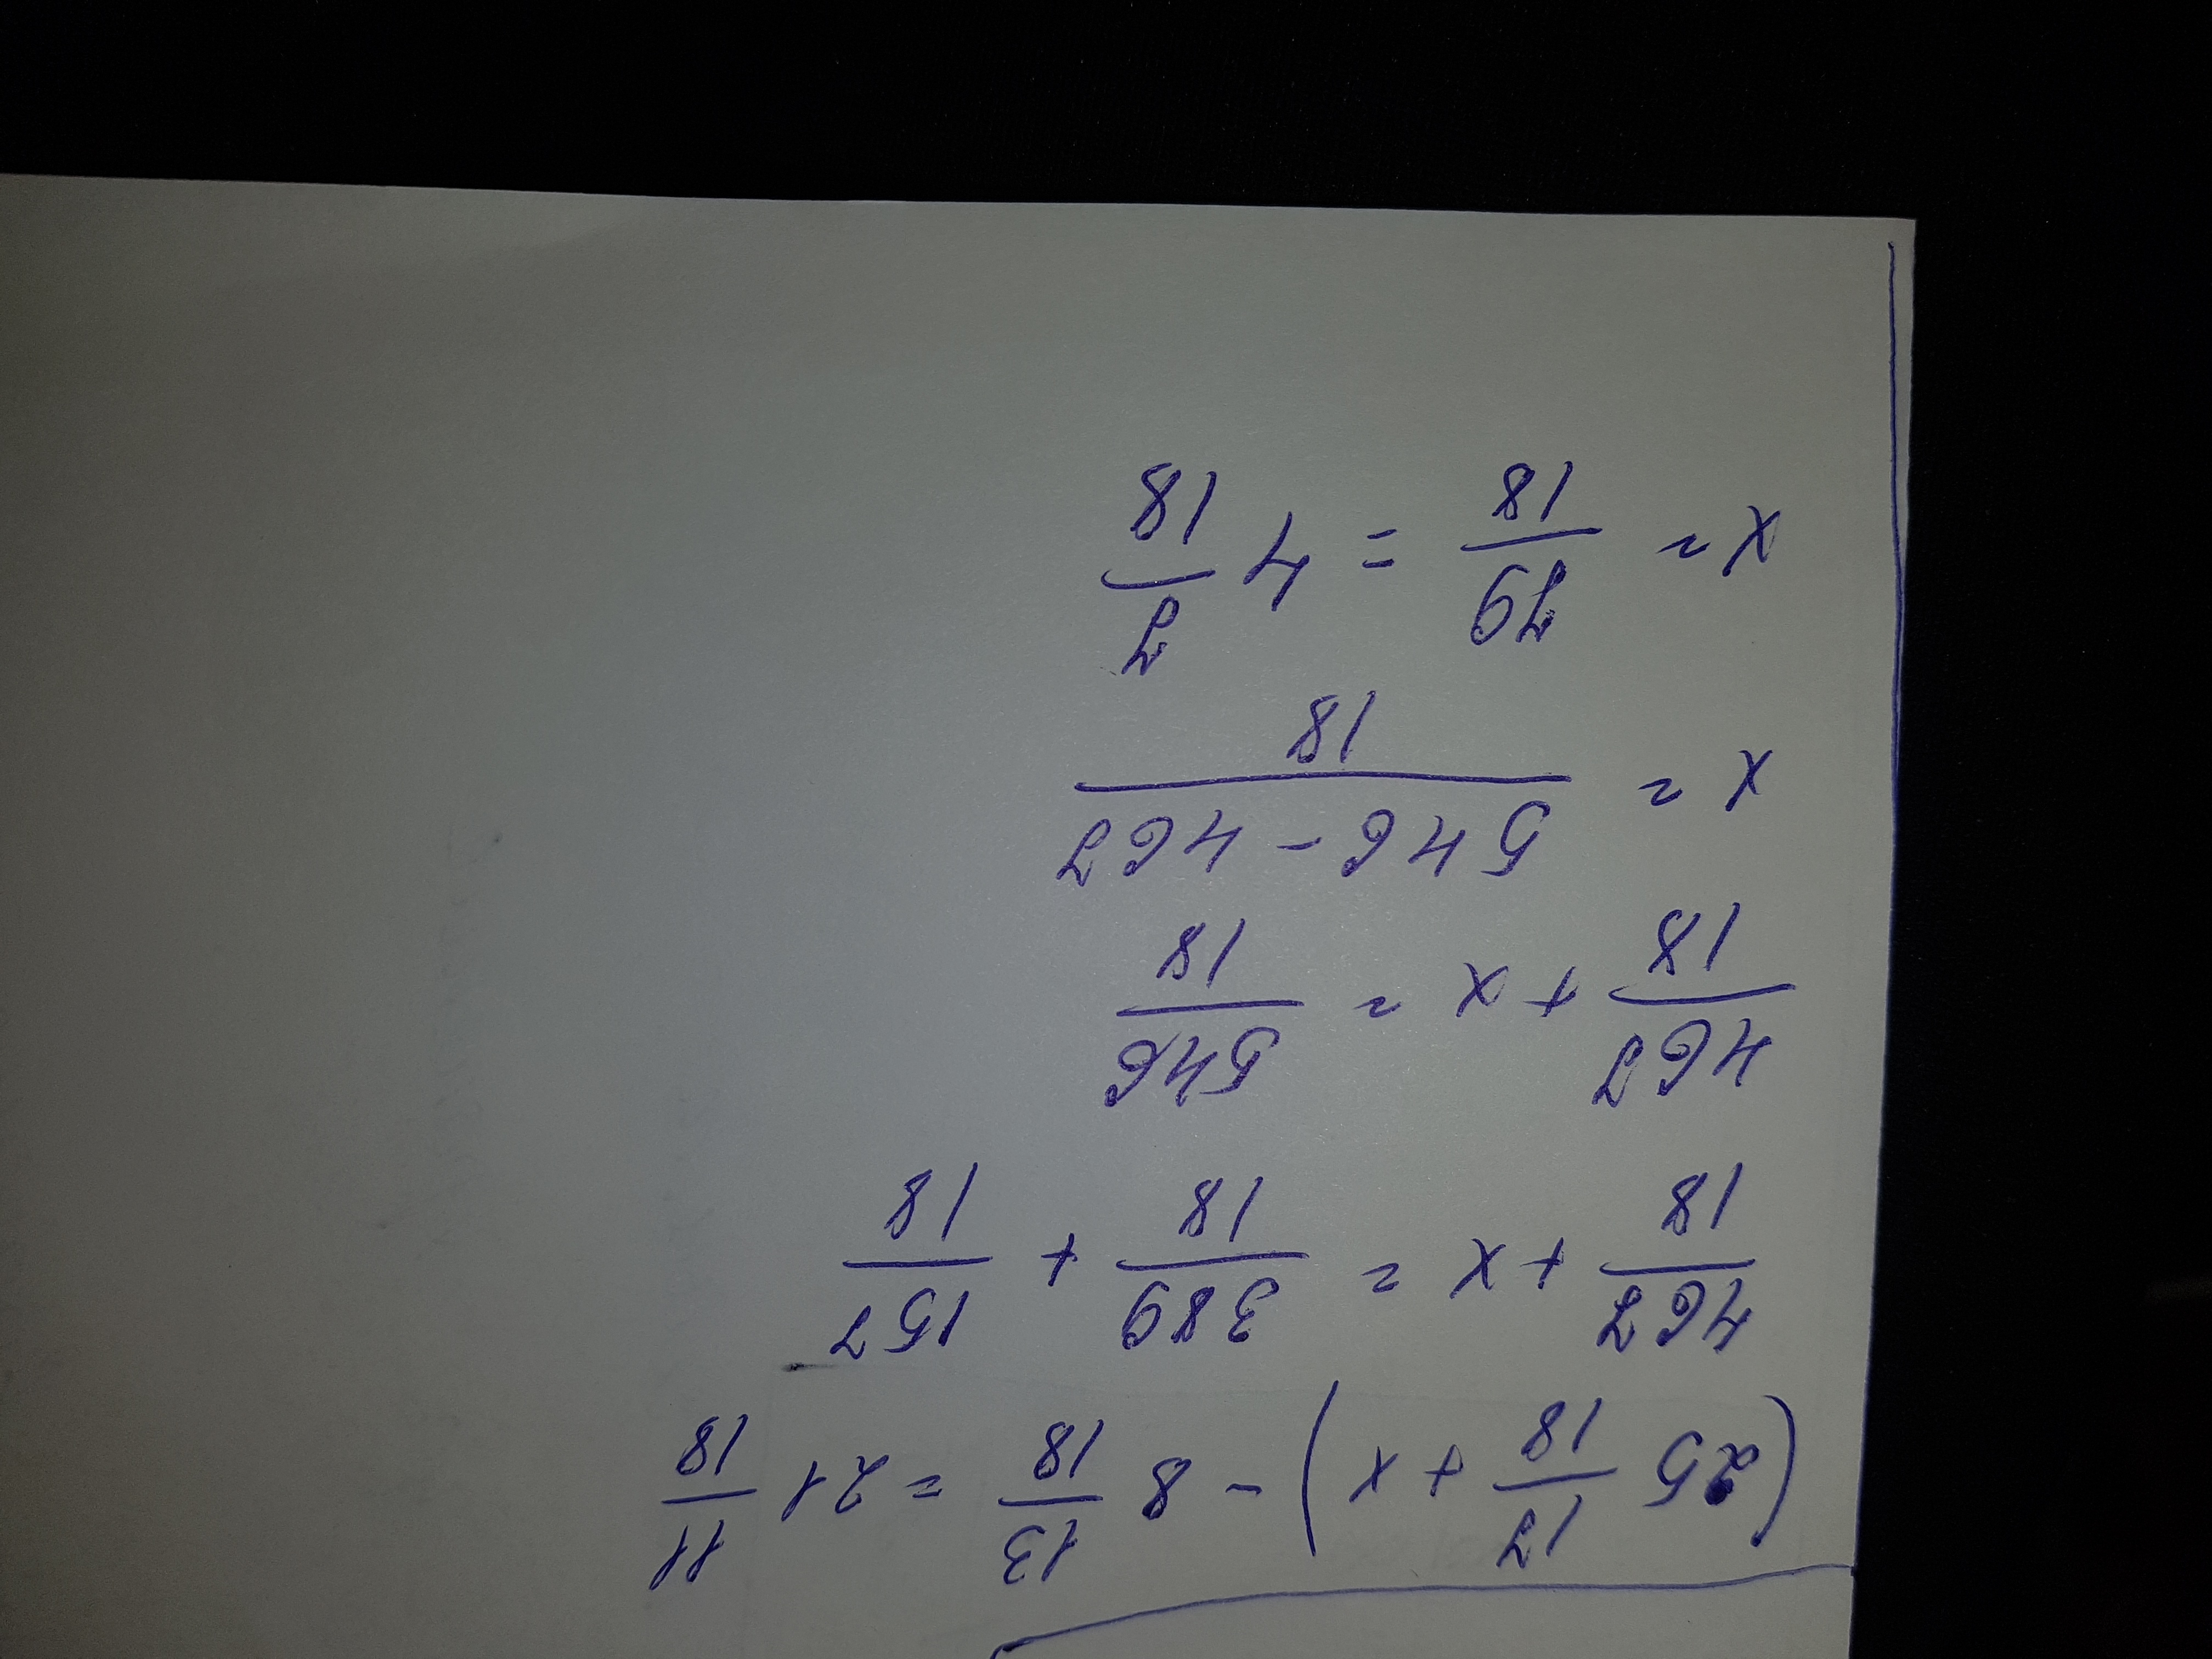 (25 17/18 + x) - 8 13/18 = 21 11/18
467/18 + x = 389/18 + 157/18
467/18 + x = 546/18
x = 546 - 467/18
x = 79/18 = 4 7/18